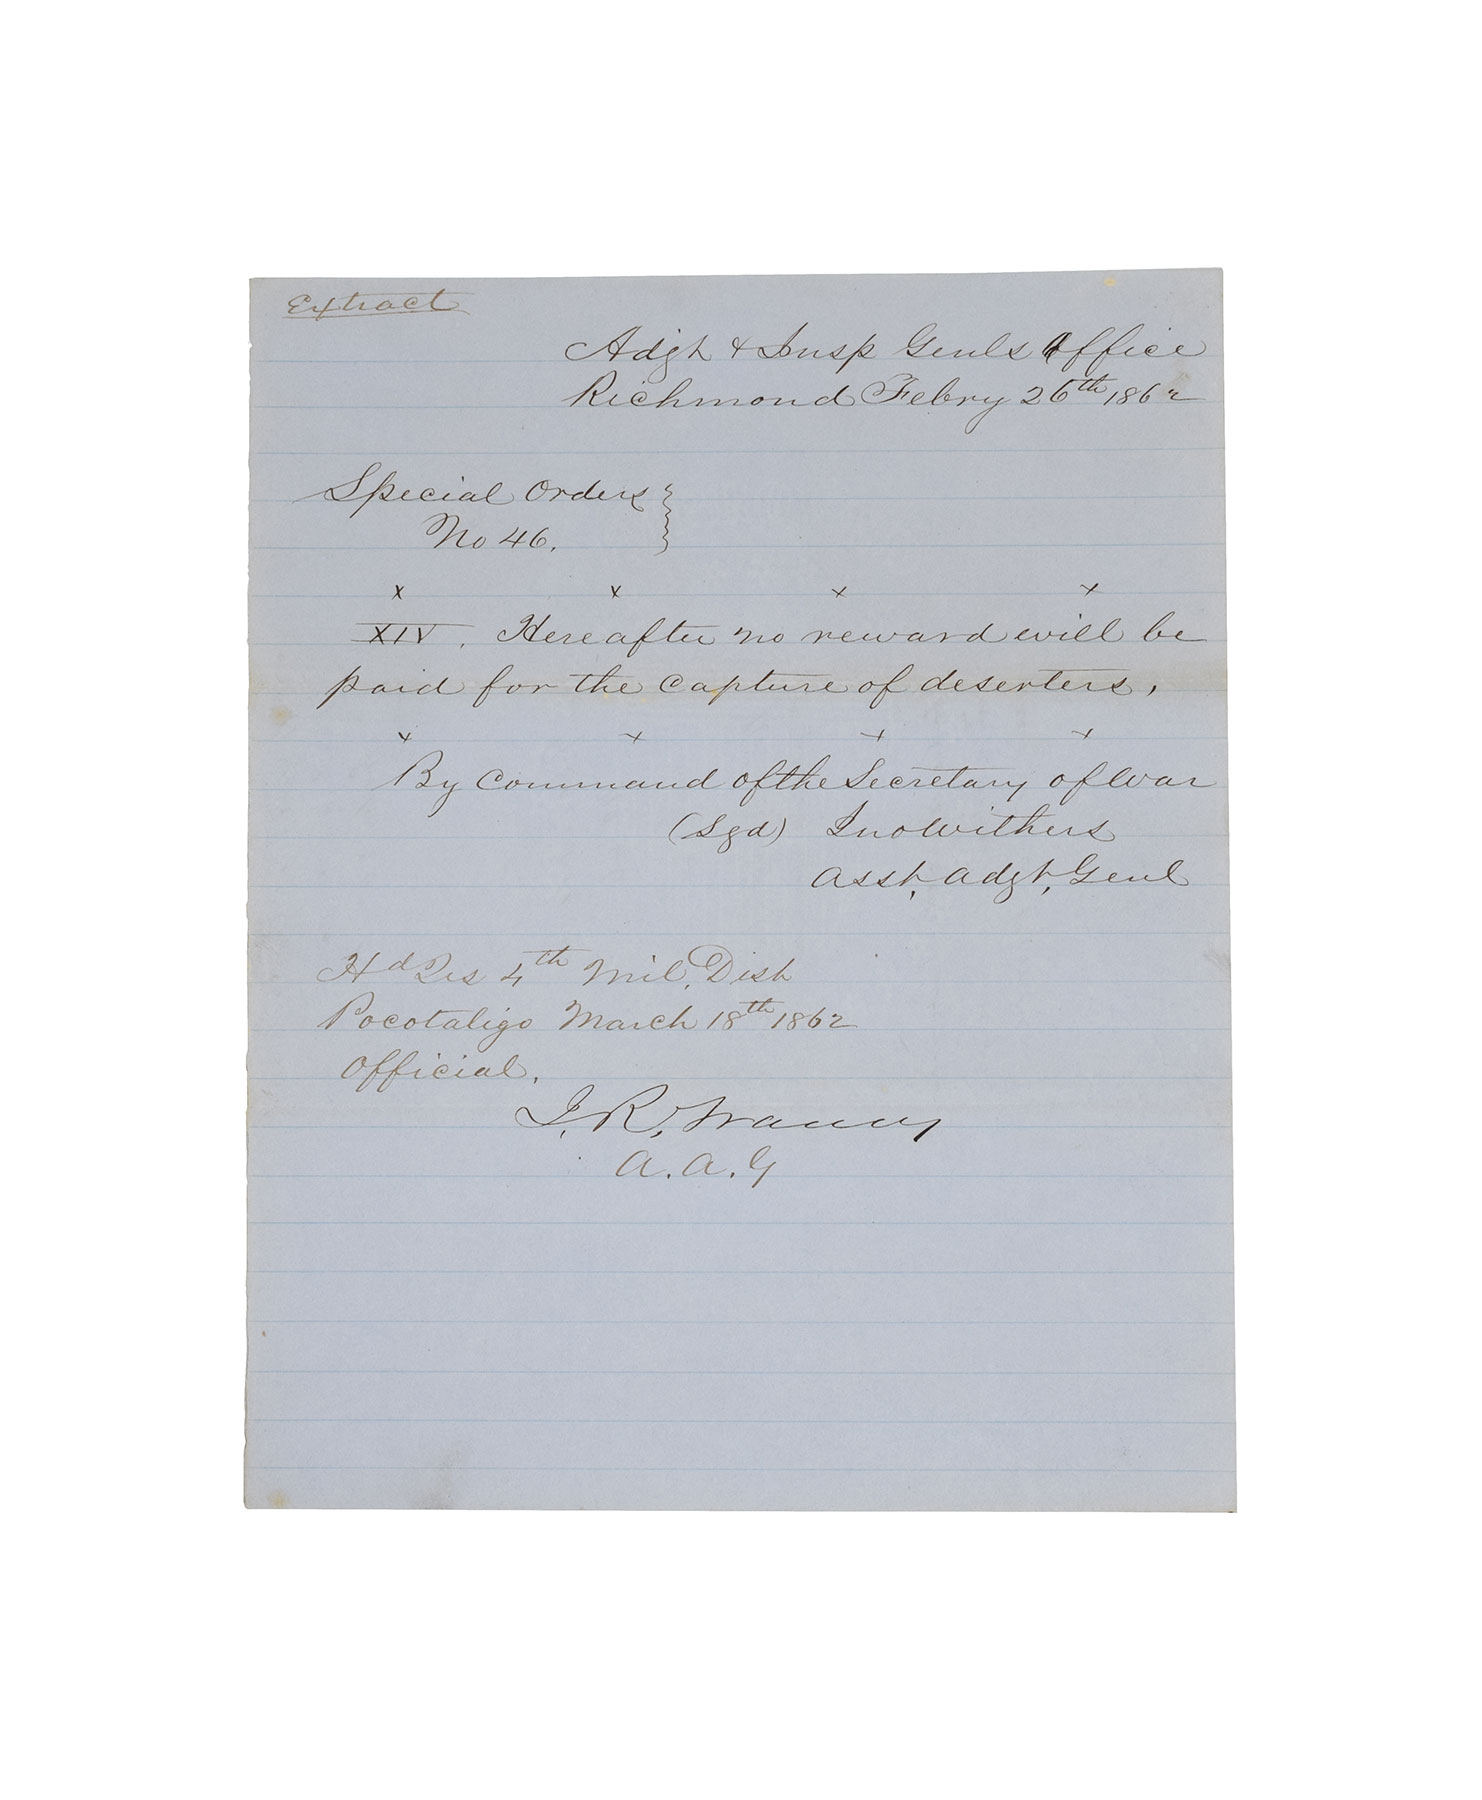 Extract
Adgt & Insp Genls Office
Richmond Febry 26th 1862
Special Orders
No 46.
x x x x
XIV. Hereafter no reward will be
paid for the capture of deserters.
x x x x
By Command of the Secretary of War
(Sgd) Jno Withers
Asst, Adgt, Genl
Hd Qrs 4th Mil, Dist
Pocotaligo March 18th 1862
Official.
J. R.
A. A. G